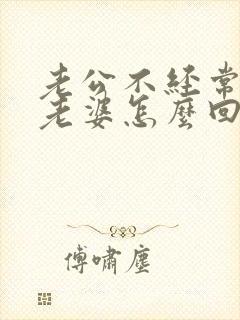 老公不経常
老婆怎麼回
傅嘯塵